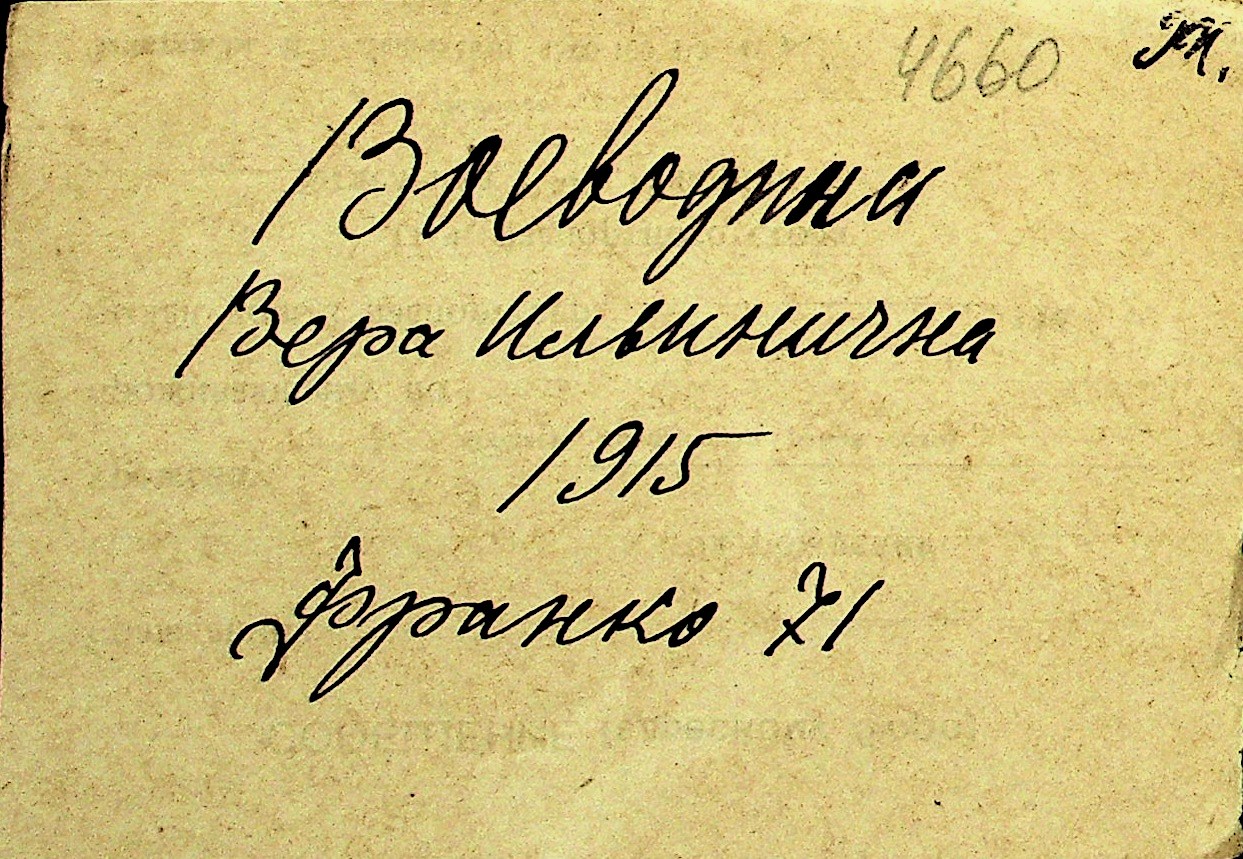 4660
Воеводина
Вера Ильинична
1915
Франко 71